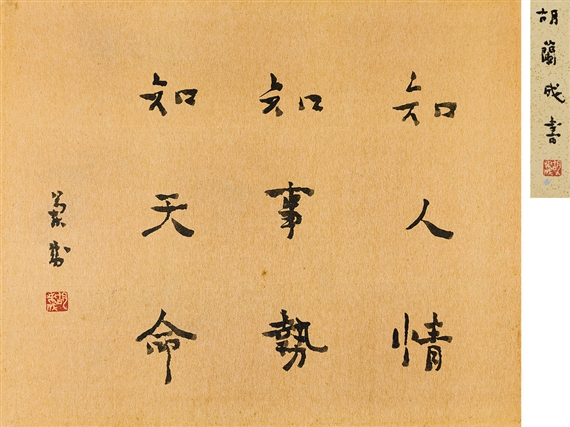 知人情
知事勢
知天命
胡蘭成書